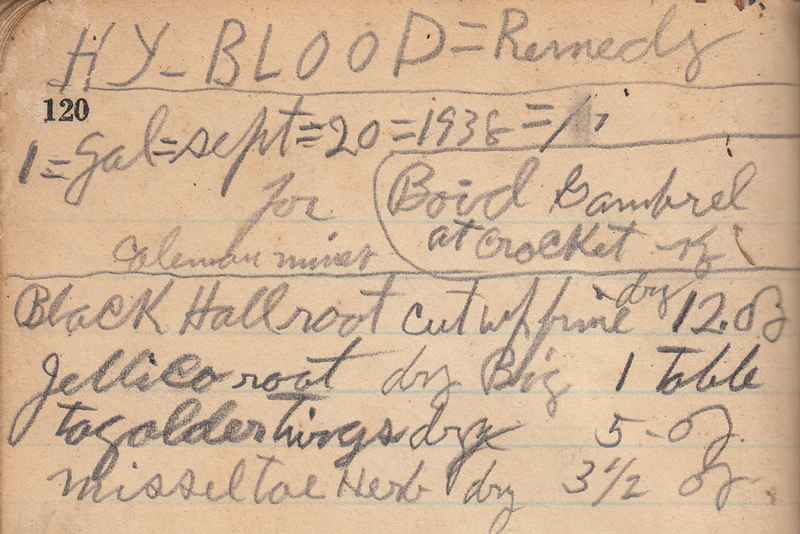 HY-BLOOD = Remedy
120
1 = gal = sept = 20 = 1938 =
for Boid Gambrel
at Crocket Ky
Coleman mines
Black Hall root cut up fine dry 12. oz
Jellico root dry Big 1 Table
tag alder dry 5- oz
misseltoe Herb dry 3 1/2 oz